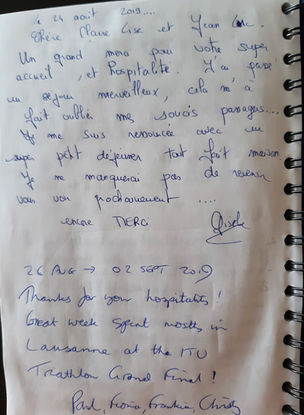 Le 24 août 2019....
Chère Claire Lise et Jean Luc.
Un grand merci pour votre super
accueil, et hospitalité. J'ai passé
un séjour merveilleux, cela m'a
fait oublier mes soucis passagers....
Je me suis ressourcée avec un
super petit déjeuner tout fait maison
Je ne manquerai pas de revenir
vous voir prochainement ....
encore MERCI Gisèle
26 AUG → 02 SEPT 2019
Thanks for your hospitality!
Great week spent mostly in
Lausanne at the ITU
Triathlon Grand Final!
Paul, Fiona, Frankie, Christy